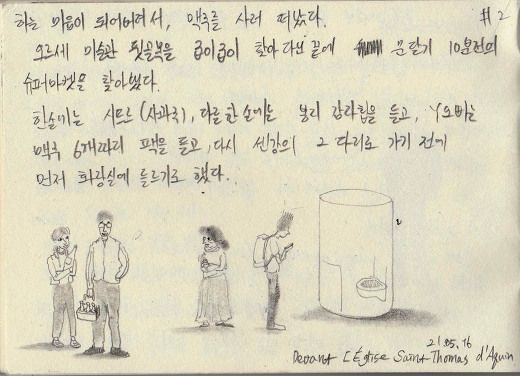 하는 마음이 되어버려서, 맥주를 사러 떠났다. #2
오르세 미술관 뒷골목을 굽이굽이 찾아 다닌 끝에 문닫기 10분전의
슈퍼마켓을 찾아냈다.
한손에는 시드르(사과주), 다른 한 손에는 봉리 감자칩을 들고, Y오빠는
맥주 6개짜리 팩을 들고, 다시 센강의 그 다리로 가기 전에
먼저 화장실에 들르기로 했다.
21.05.16
Devant L'Église Saint-Thomas d'Aquin